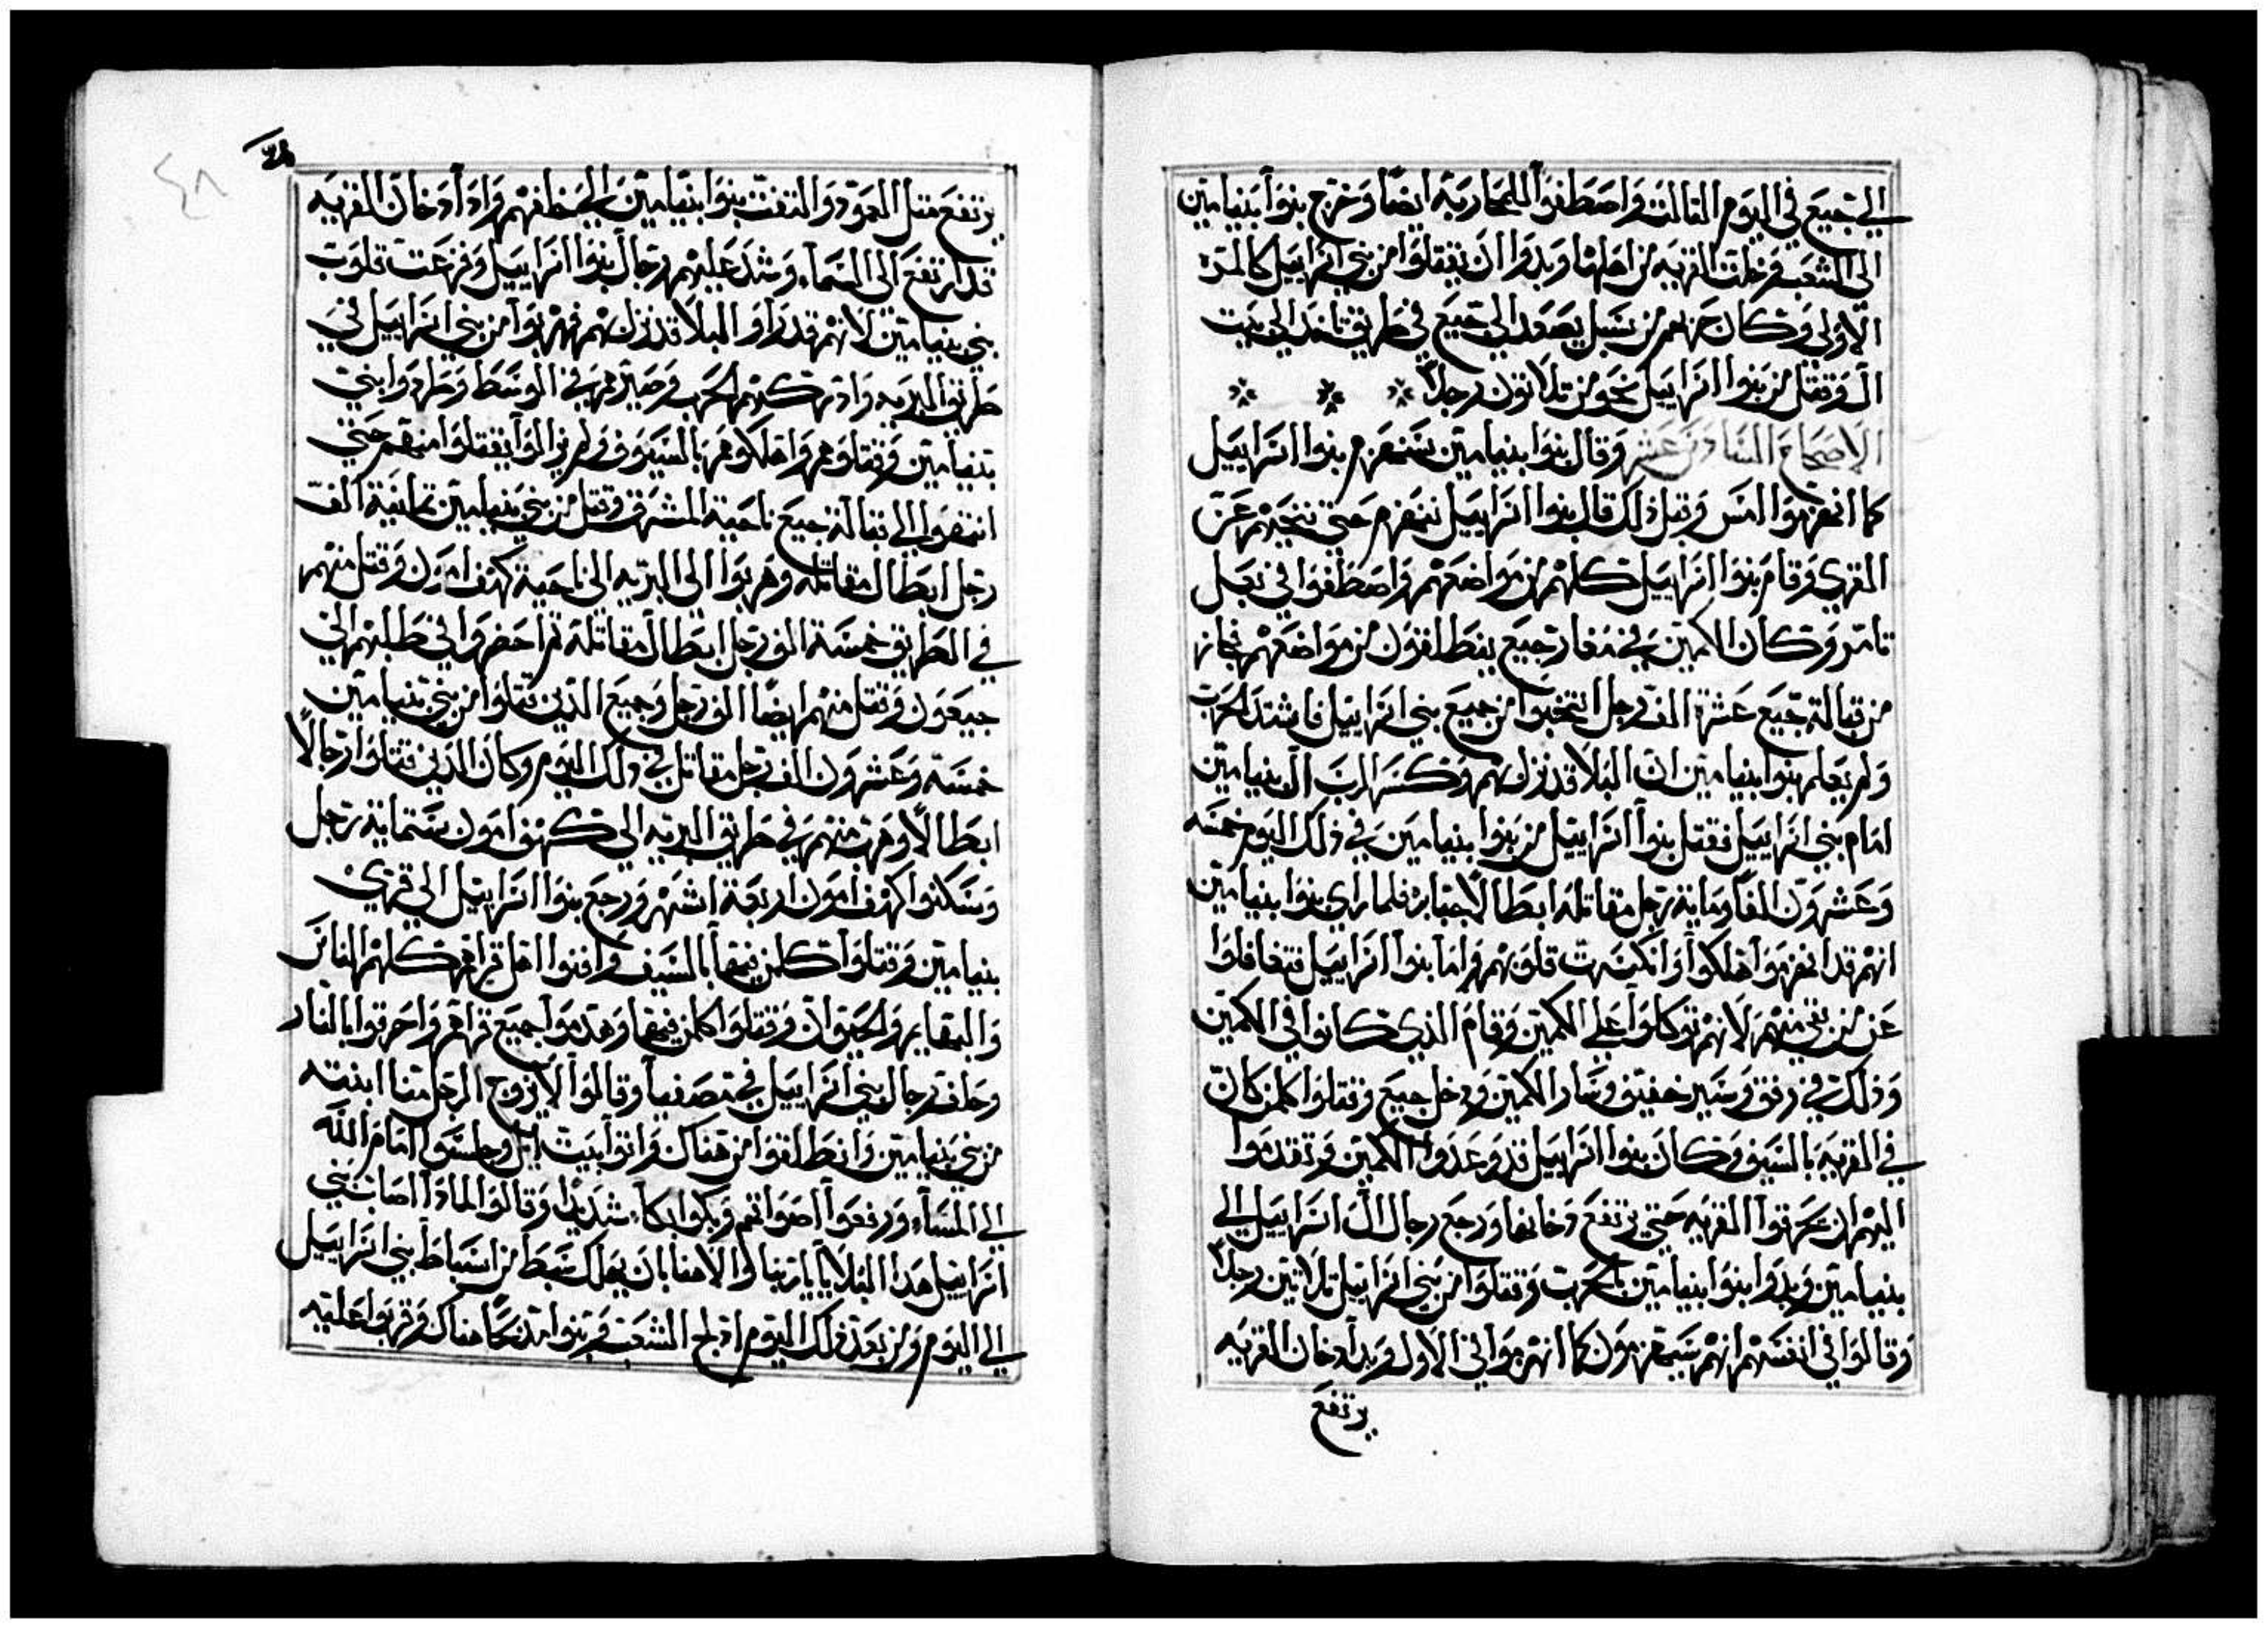 الي جبيع في اليوم الثالث واصطفوا للمحاربة ايضًا وخرج بنوا بنيامين
الى الشعب وخلت القريه من اهلها وبدوا ان يقتلوا من بني اسراييل كالمرة
الاولى وكان جمعهم من سبيل يصعد الى جبيع في طريق تاخد الي بيت
ال وقتل من بنوا اسراييل نحو من تلاتون رجلاً
الاصحاح السادس عشر وقال بنوا بنيامين سنهزم بنوا اسراييل
كما انهزموا امس وقبل ذلك قال بنوا اسراييل ننهزم حتى ننحيهم عن
القري وقام بنوا اسراييل كلهم من مواضعهم واصطفوا في بعل
تامر وكان الكمين في مغار جبيع ينطلقون من مواضعهم فجاز
من قبالة جبيع عشرة الف رجل انتخبوا من جميع بني اسراييل فاشتد الحرب
ولم يعلم بنوا بنيامين ان البلا قد نزل بهم وكسر الرب ال بنيامين
امام بني اسراييل فقتل بنوا اسراييل من بنوا بنيامين في ذلك اليوم خمسه
وعشرون الفًا ومايه رجل مقاتله ابطالاً جبابره فلما راي بنوا بنيامين
انهم قد انهزموا هلكوا وانكسرت قلوبهم واما بنوا اسراييل فتغافلوا
عن من بقي منهم لانهم توكلوا علي الكمين وقام الذي كانوا في الكمين
وذلك في رفق وسير خفيف وسار الكمين ودخل جبيع وقتلوا كلمن كان
في القريه بالسيف وكان بنوا اسراييل قد وعدوا الكمين وتقدموا
اليهم ان يحرقوا القريه حتي يرتفع دخانها ورجع رجال ال اسراييل الي
بنيامين وبدوا بنوا بنيامين بالحرب وقتلوا من بني اسراييل تلاتين رجلاً
وقالوا في انفسهم انهم سيهزمون كما انهزموا في الاول وبدا دخان القريه
يرتفع
٤٨
يرتفع متل العمود والتفت بنوا بنيامين الي خلفهم واذا دخان القريه
قد ارتفع الى السماء وشد عليهم رجال بنوا اسراييل وفزعت قلوب
بني بنيامين لانهم قد راوا البلا قد نزل بهم فهربوا من بني اسراييل في
طريق البريه وادركهم الحرب وصيروهم في الوسط وطردوا بني
بنيامين وقتلوهم واهلكوهم بالسيوف ولم يزالوا يقتلوا منهم حتي
انتهوا الي قبالة جبيع ناحية المشرق وقتل من بني بنيامين تمانية الف
رجل ابطال مقاتله وهربوا الى البريه الى ناحية كهف امون وقتل منهم
في الطريق خمسة الف رجل ابطال مقاتله تم احضروا في طلبهم الي
جبعون وقتل منهم ايضًا الف رجل وجميع الذين قتلوا من بني بنيامين
خمسة وعشرون الف رجل مقاتل في ذلك اليوم وكان الذين قتلوا رجالاً
ابطالاً وهرب منهم في طريق البريه الى كهف امون ستمايه رجل
وسكنوا كهف امون اربعة اشهر ورجع بنوا اسراييل الي قري
بنيامين وقتلوا كلمن فيها بالسيف وافنوا اهل قراهم كلهم الناس
والبهايم والحيوان وقتلوا كلمن فيها وهدموا جميع قراهم واحرقوا بالنار
وحلف رجال بني اسراييل في مصفيا وقالوا لا يزوج الرجل منا ابنته
من بني بنيامين وانطلقوا من هناك واتوا بيت ايل وجلسوا امام الله
الي المساء ورفعوا اصواتهم وبكوا بكاء شديدًا وقالوا لمادا اصاب بني
اسراييل هدا البلايا يا ربنا والاهنا بان يهلك سبط من اسباط بني اسراييل
الي اليوم ومن بعد ذلك اليوم ادلج الشعب وبنوا مدبحًا هناك وقربوا عليه